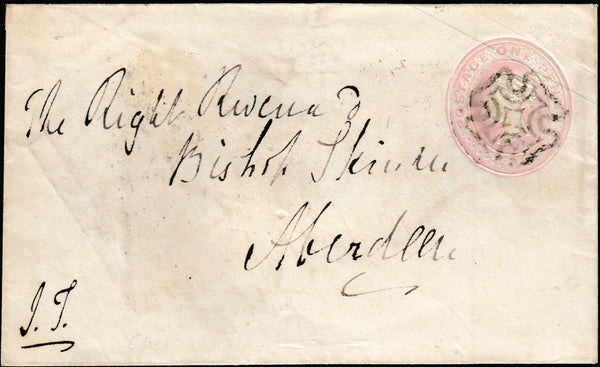 POSTAGE ONE PE
The Right Revend
Bishop Skinner
Aberdeen
J. T.